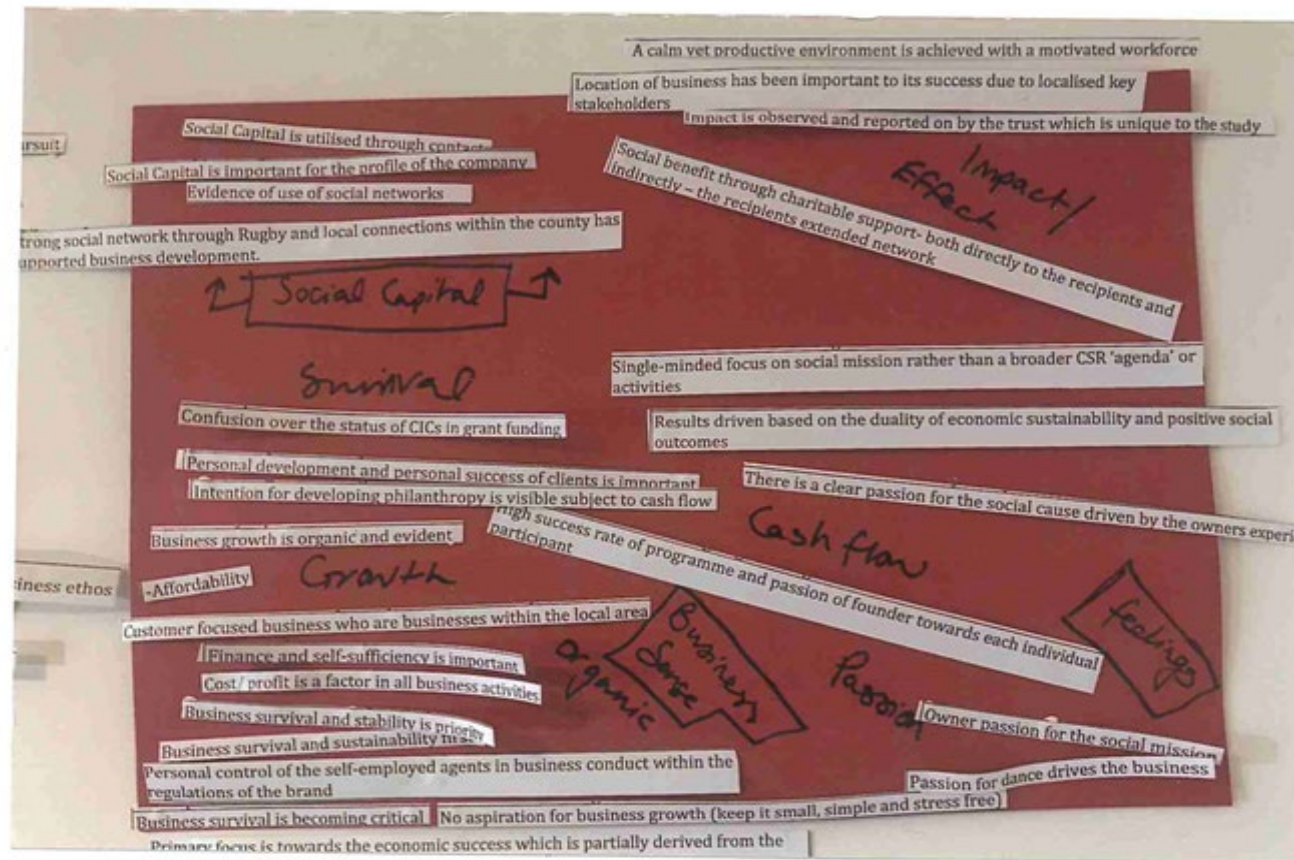 A calm yet productive environment is achieved with a motivated workforce
Location of business has been important to its success due to localised key
stakeholders
Impact is observed and reported on by the trust which is unique to the study
Social Capital is utilised through
Social Capital is important for the profile of the company
Evidence of use of social networks
trong social network through Rugby and local connections within the county has
upported business development.
Social benefit through charitable support- both directly to the recipients and
indirectly – the recipients extended network
Impact/
Effect
Social Capital
Survival
Single-minded focus on social mission rather than a broader CSR 'agenda' or
activities
Confusion over the status of CICs in grant funding
Results driven based on the duality of economic sustainability and positive social
outcomes
Personal development and personal success of clients is important
Intention for developing philanthropy is visible subject to cash flow
There is a clear passion for the social cause driven by the owners experi
High success rate of programme and passion of founder towards each individual
participant
Cash flow
Business growth is organic and evident
iness ethos
-Affordability
Growth
Customer focused business who are businesses within the local area
Finance and self-sufficiency is important
Cost/ profit is a factor in all business activities
Business Sense
organic
Passion
feelings
Business survival and stability is priority
Business survival and sustainability
Owner passion for the social mission
Personal control of the self-employed agents in business conduct within the
regulations of the brand
Passion for dance drives the business
Business survival is becoming critical
No aspiration for business growth (keep it small, simple and stress free)
Primary focus is towards the economic success which is partially derived from the